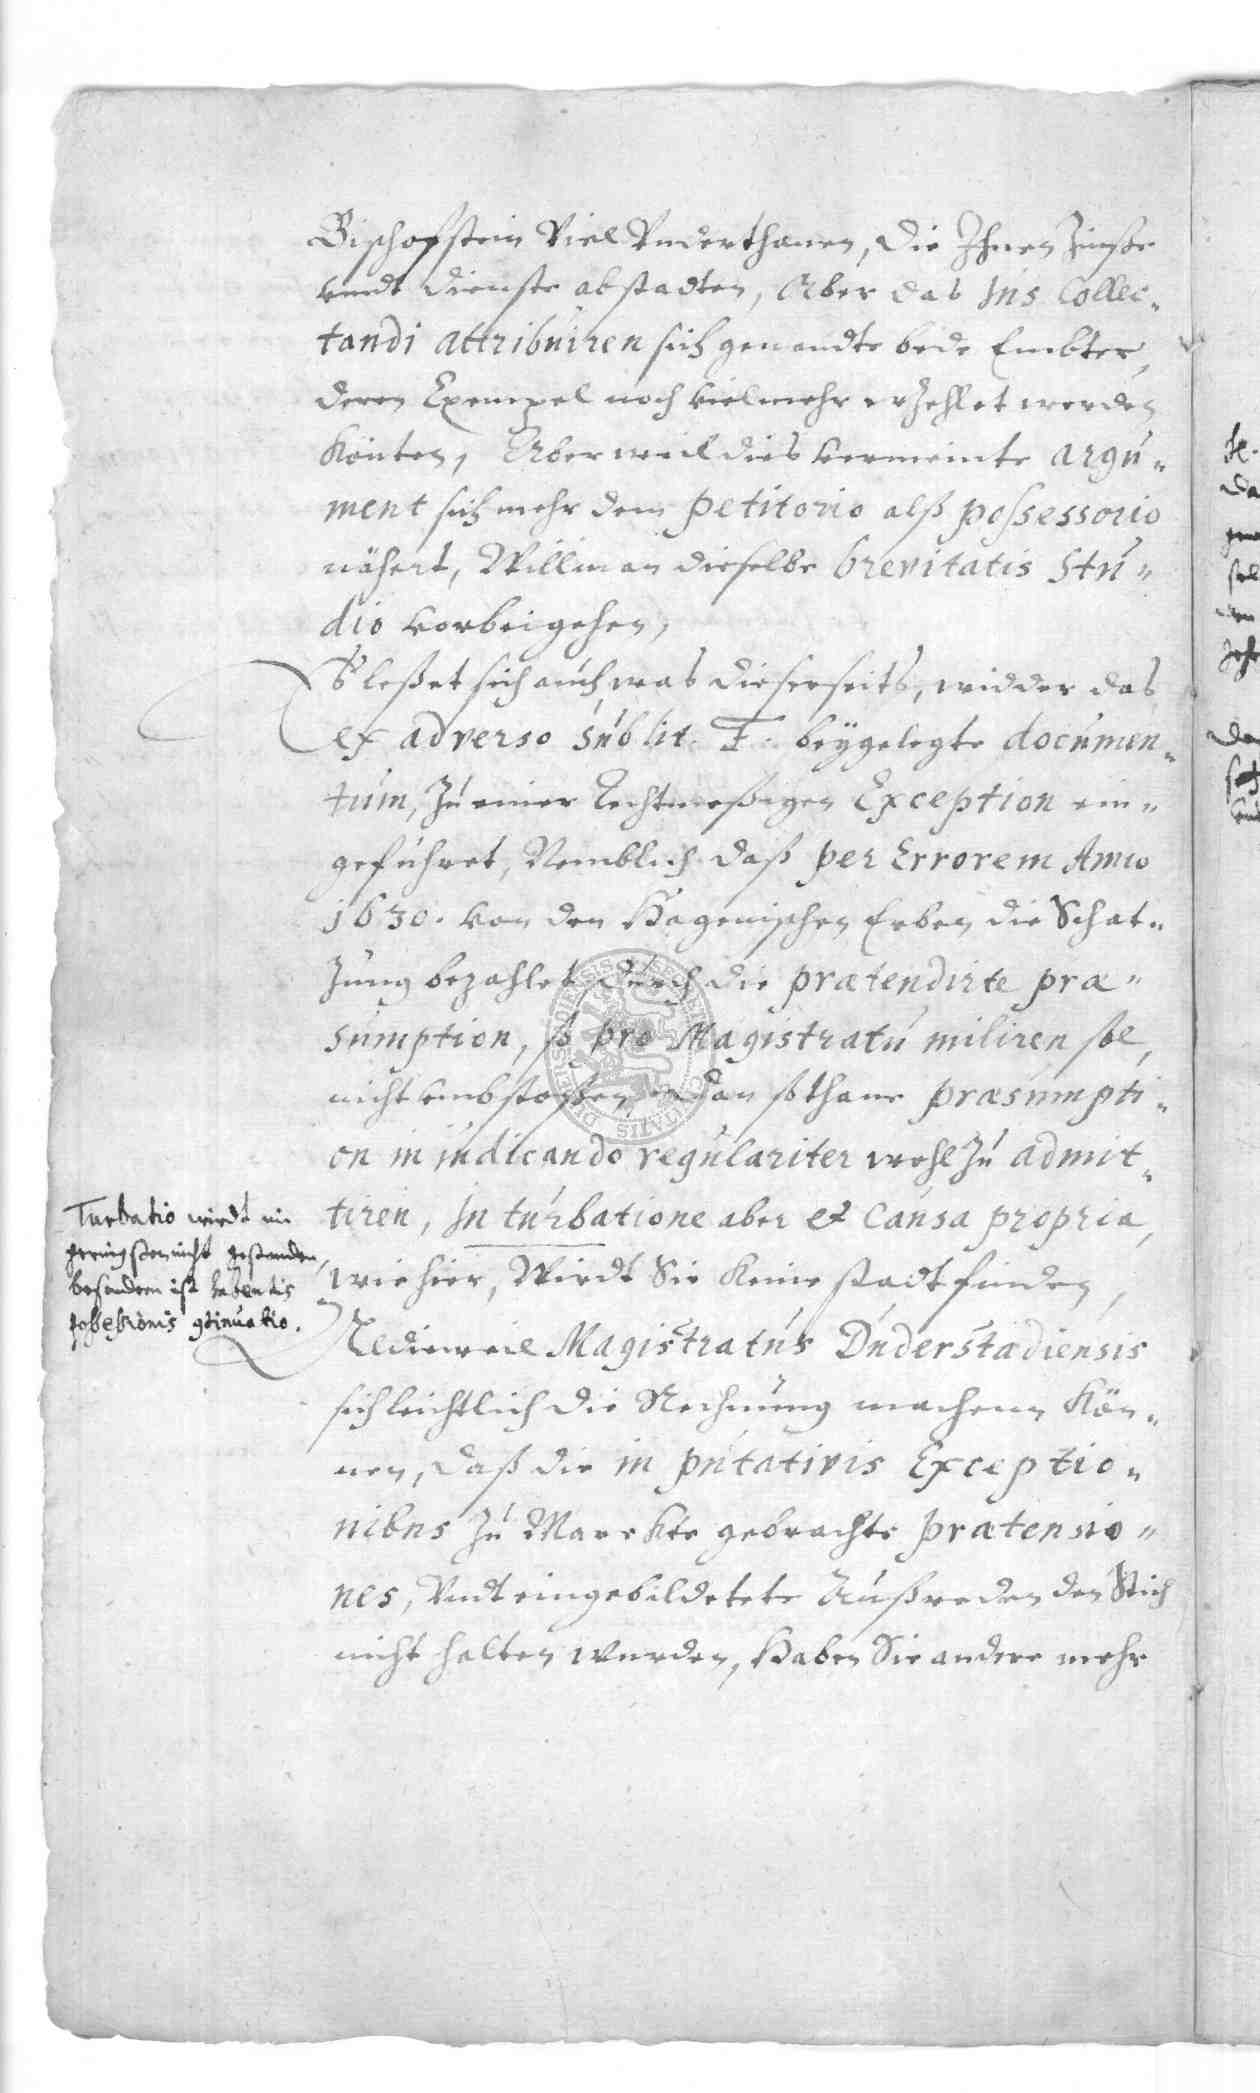 Bischofstein Viel Vnderthanen, die Ihnen Zinße
vndt dienste abstadten, Aber das Jus Collec-
tandi attribuiren sich genandte bede Embter,
deren Exempel noch vielmehr erzehlet werden
Könten, Aber weil dies vermeinte argu-
ment sich mehr dem petitorio alß possessorio
nähert, Will man dieselbe brevitatis Stu-
dio vorbeigehen,
Eß leßet sich auch, was dieserseits, widder das
ex adverso sub lit. F. beygelegte documen-
tum, Zu einer Rechtmeßigen Exception ein-
geführet, Nemblich daß per Errorem Anno
1630. von den Hagenischen Erben die Schat-
zung bezahlet durch die prætendirte præ-
sumption, so pro Magistratu miliren sol,
nicht vmbstoßen, dan sothane præsumpti-
on in iudicando regulariter wohl Zu admit-
tiren, In turbatione aber et Causa propria,
wie hier, Wirdt Sie Keine stadt finden,
Turbatio wirdt im
geringsten nicht gestanden,
besondern ist habentis
possessionis continuatio.
Alldieweil Magistratus Duderstadiensis
sich leichtlich die Rechnung machenn Kön-
nen, daß die in putativis Exceptio-
nibus Zu Marckte gebrachte prætensio-
nes, Vndt eingebildetete Außreden den Stich
nicht halten wurden, Haben Sie andere mehr